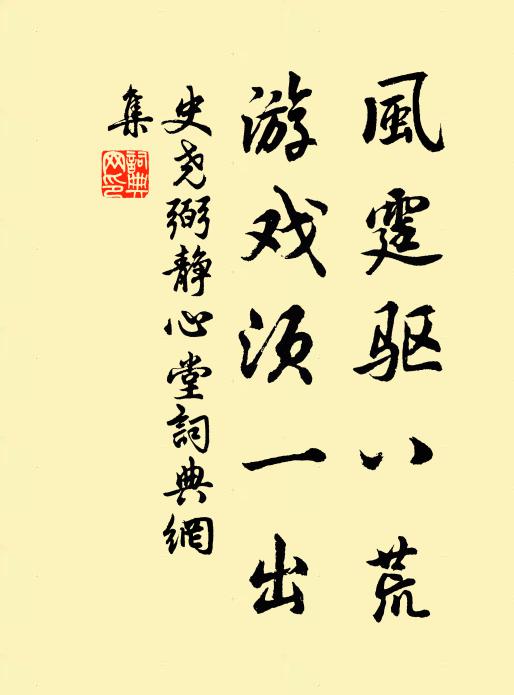 風霆驱八荒
游戏须一出
史尧弼静心堂詞典網
集
詞典
网印